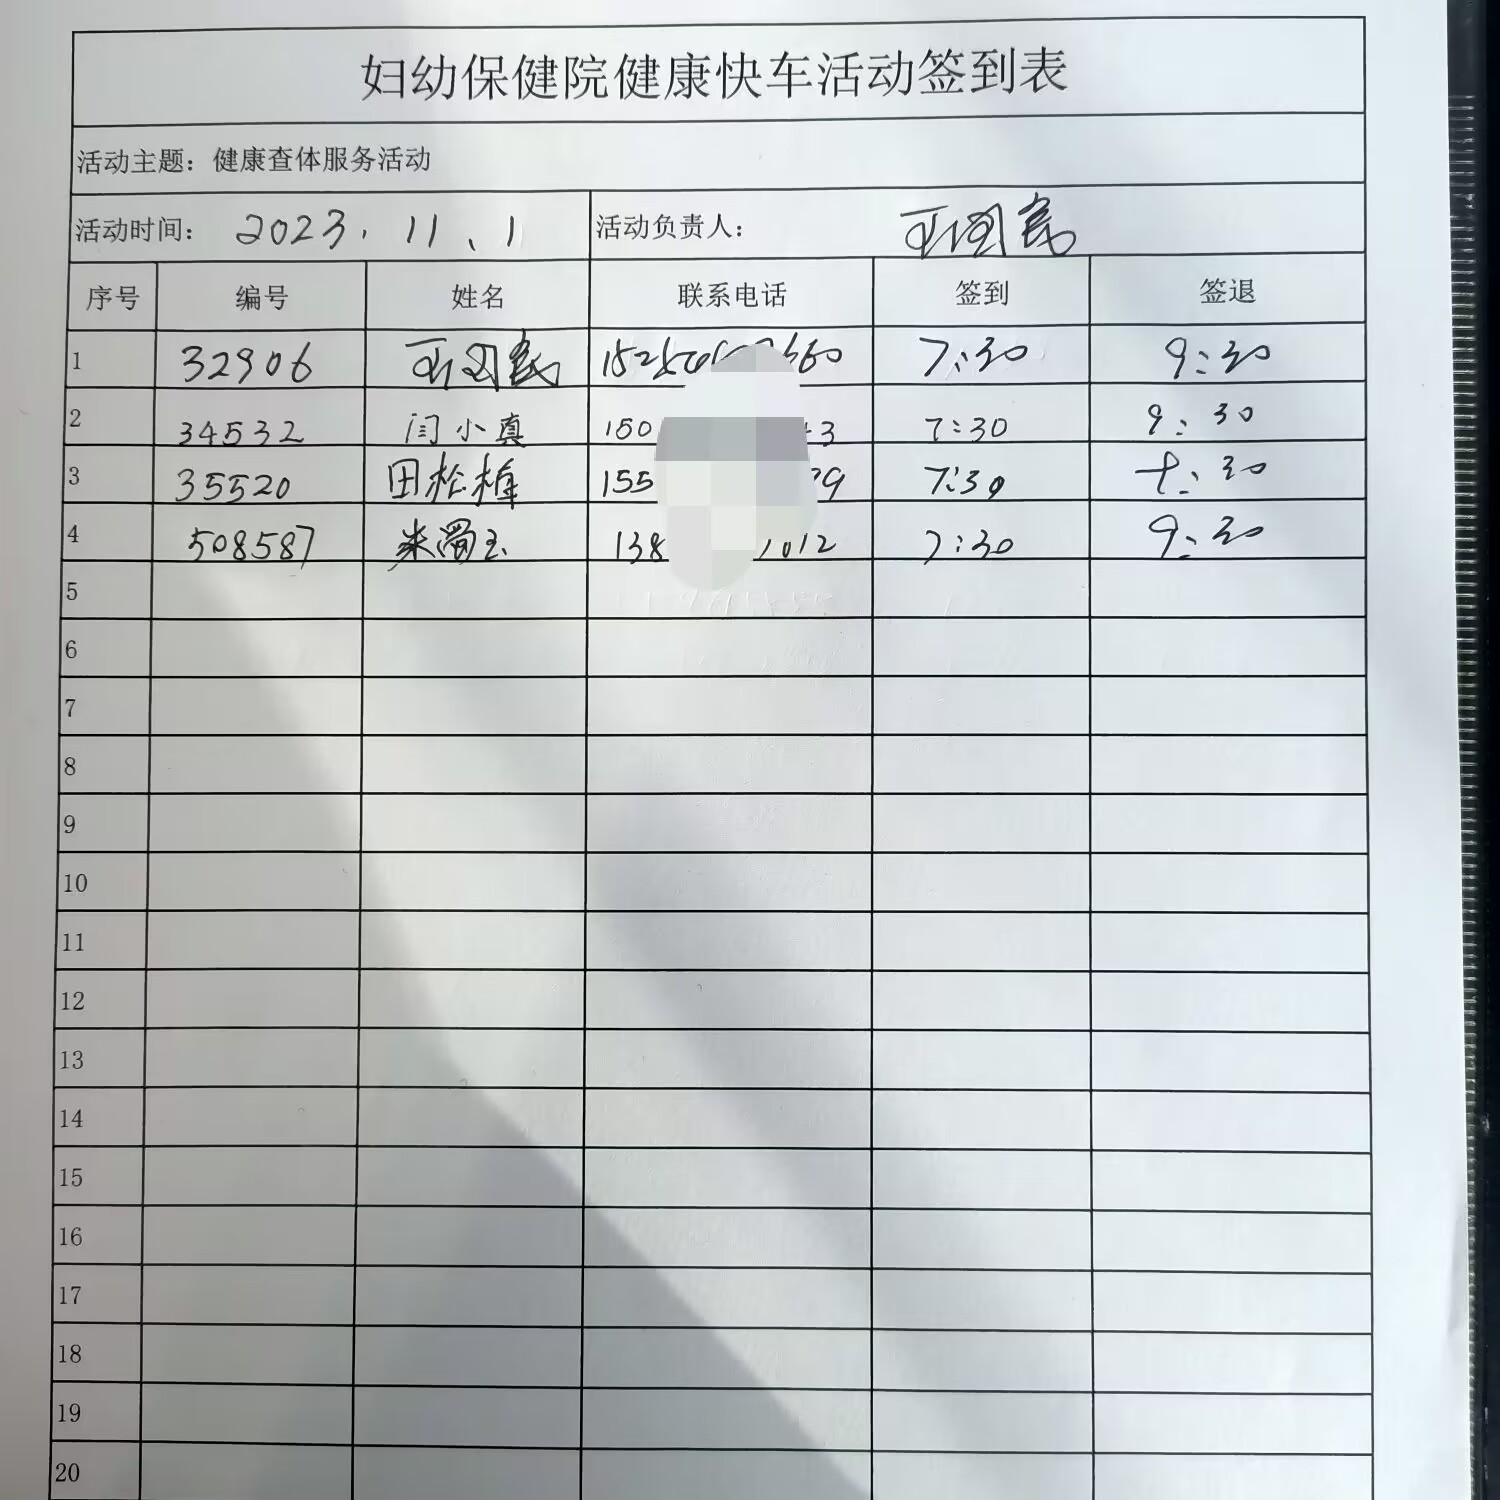 妇幼保健院健康快车活动签到表
活动主题：健康查体服务活动
活动时间： 2023.11.1 活动负责人：
序号 编号 姓名 联系电话 签到 签退
1 32906 7:30 9:30
2 34532 闫小真 150 3 7:30 9:30
3 35520 田松梅 155 79 7:30 9:30
4 508587 138 1012 7:30 9:30
5
6
7
8
9
10
11
12
13
14
15
16
17
18
19
20